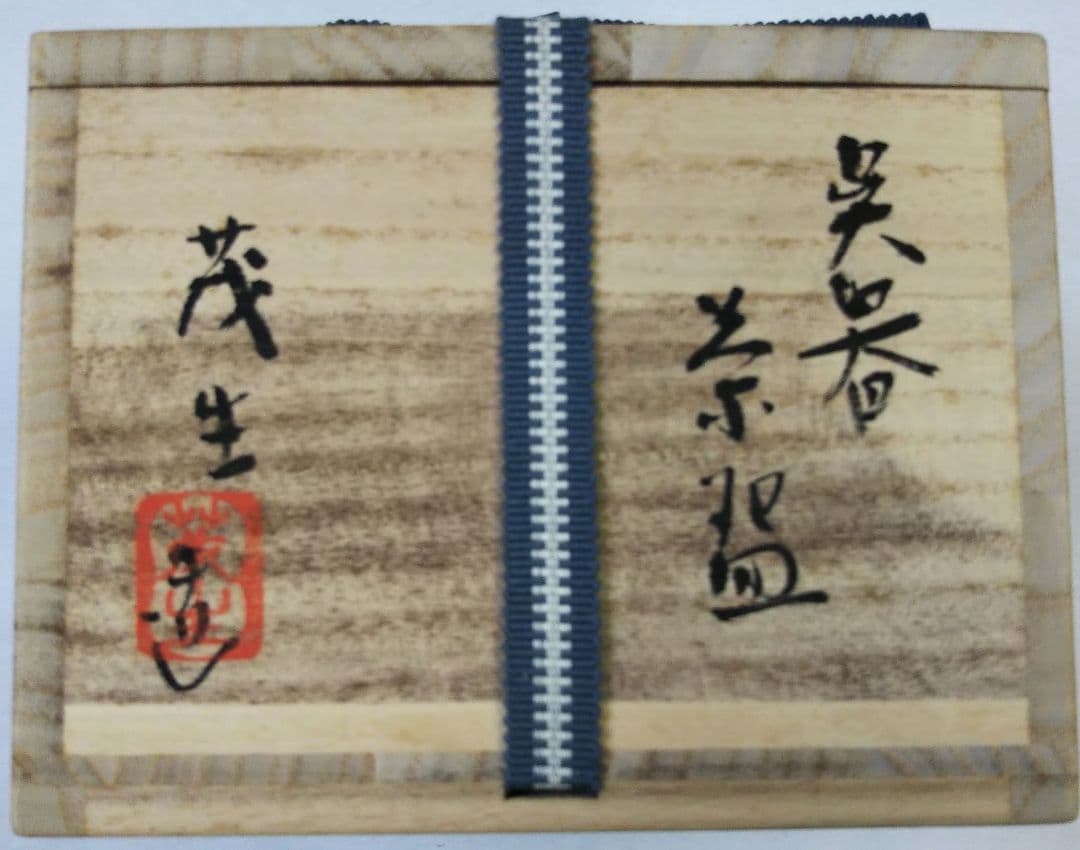 呉器
茶盌
茂生造